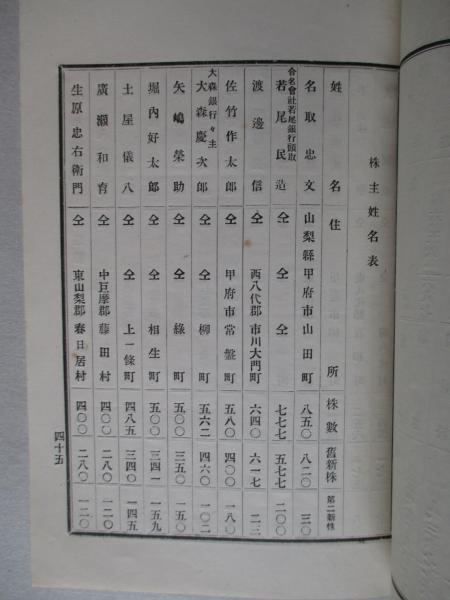 株主姓名表
姓名 住所 株數 舊新株 第二新株
名取忠文 山梨縣甲府市山田町 八五〇 八二〇 三〇
合名會社若尾銀行頭取
若尾民造 仝 仝 仝 七七七 五七七 二〇〇
渡邊信 仝 西八代郡市川大門町 六四〇 六一七 二三
佐竹作太郎 仝 甲府市常盤町 五八〇 四〇〇 一八〇
大森銀行々主
大森慶次郎 仝 仝 柳町 五六二 四六〇 一〇二
矢嶋榮助 仝 仝 綠町 五〇〇 三五〇 一五〇
堀內好太郎 仝 仝 相生町 五〇〇 三四一 一五九
土屋儀八 仝 仝 上一條町 四八五 三四〇 一四五
廣瀨和育 仝 中巨摩郡藤田村 四〇〇 二八〇 一二〇
生原忠右衛門 仝 東山梨郡春日居村 四〇〇 二八〇 一二〇
四十五